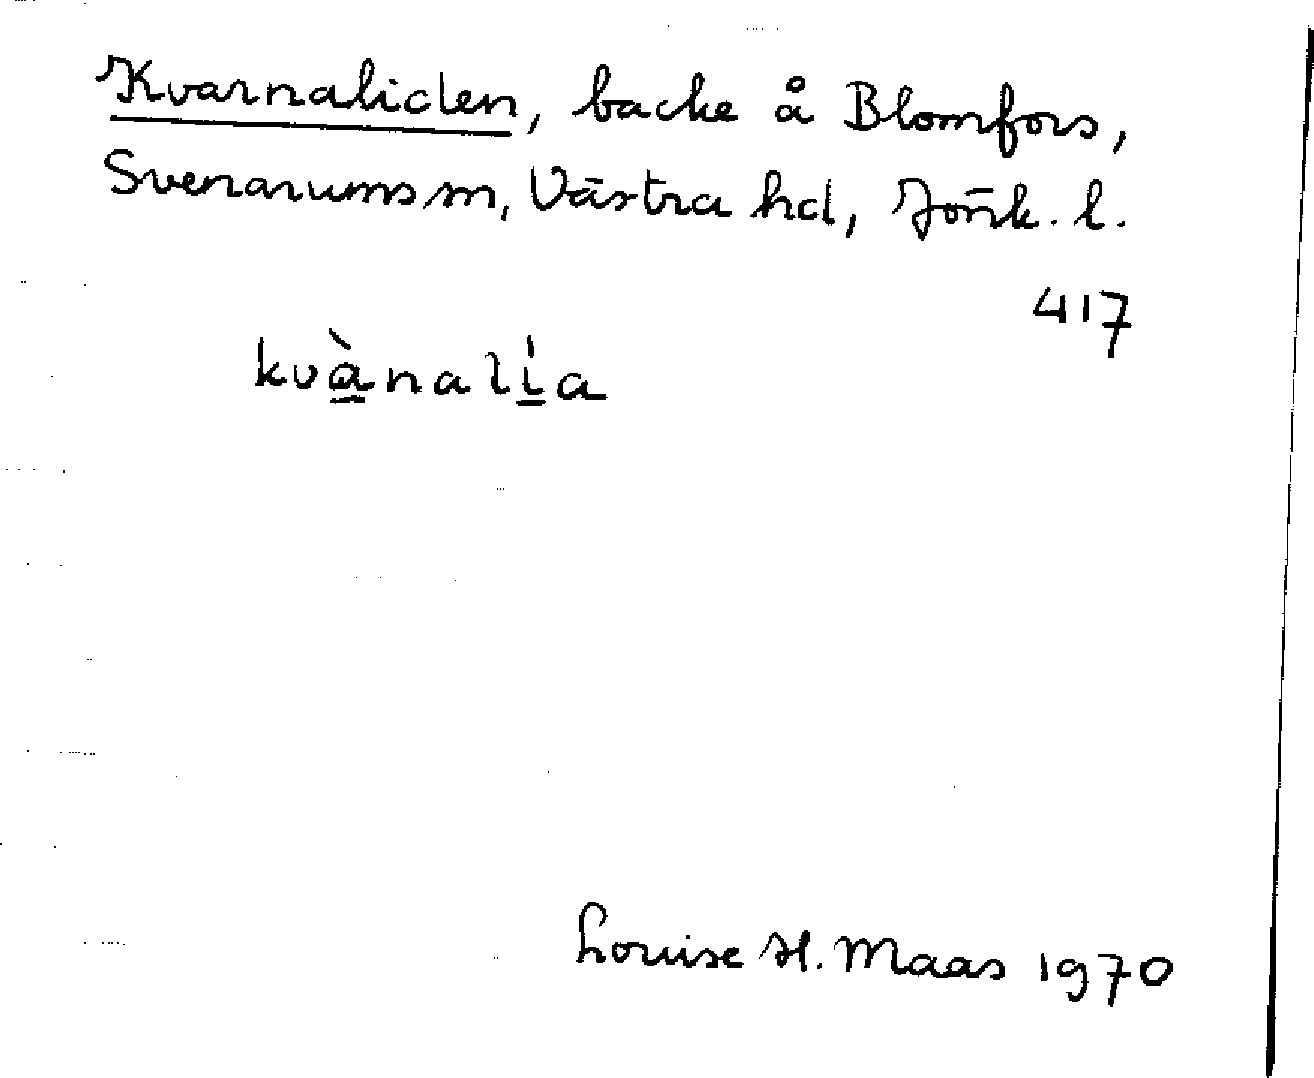 Kvarnaliden, backe å Blomfors,
Svenarums sn, Västra hd, Jönk. l.
417
kvànalía
Louise H. Maas 1970